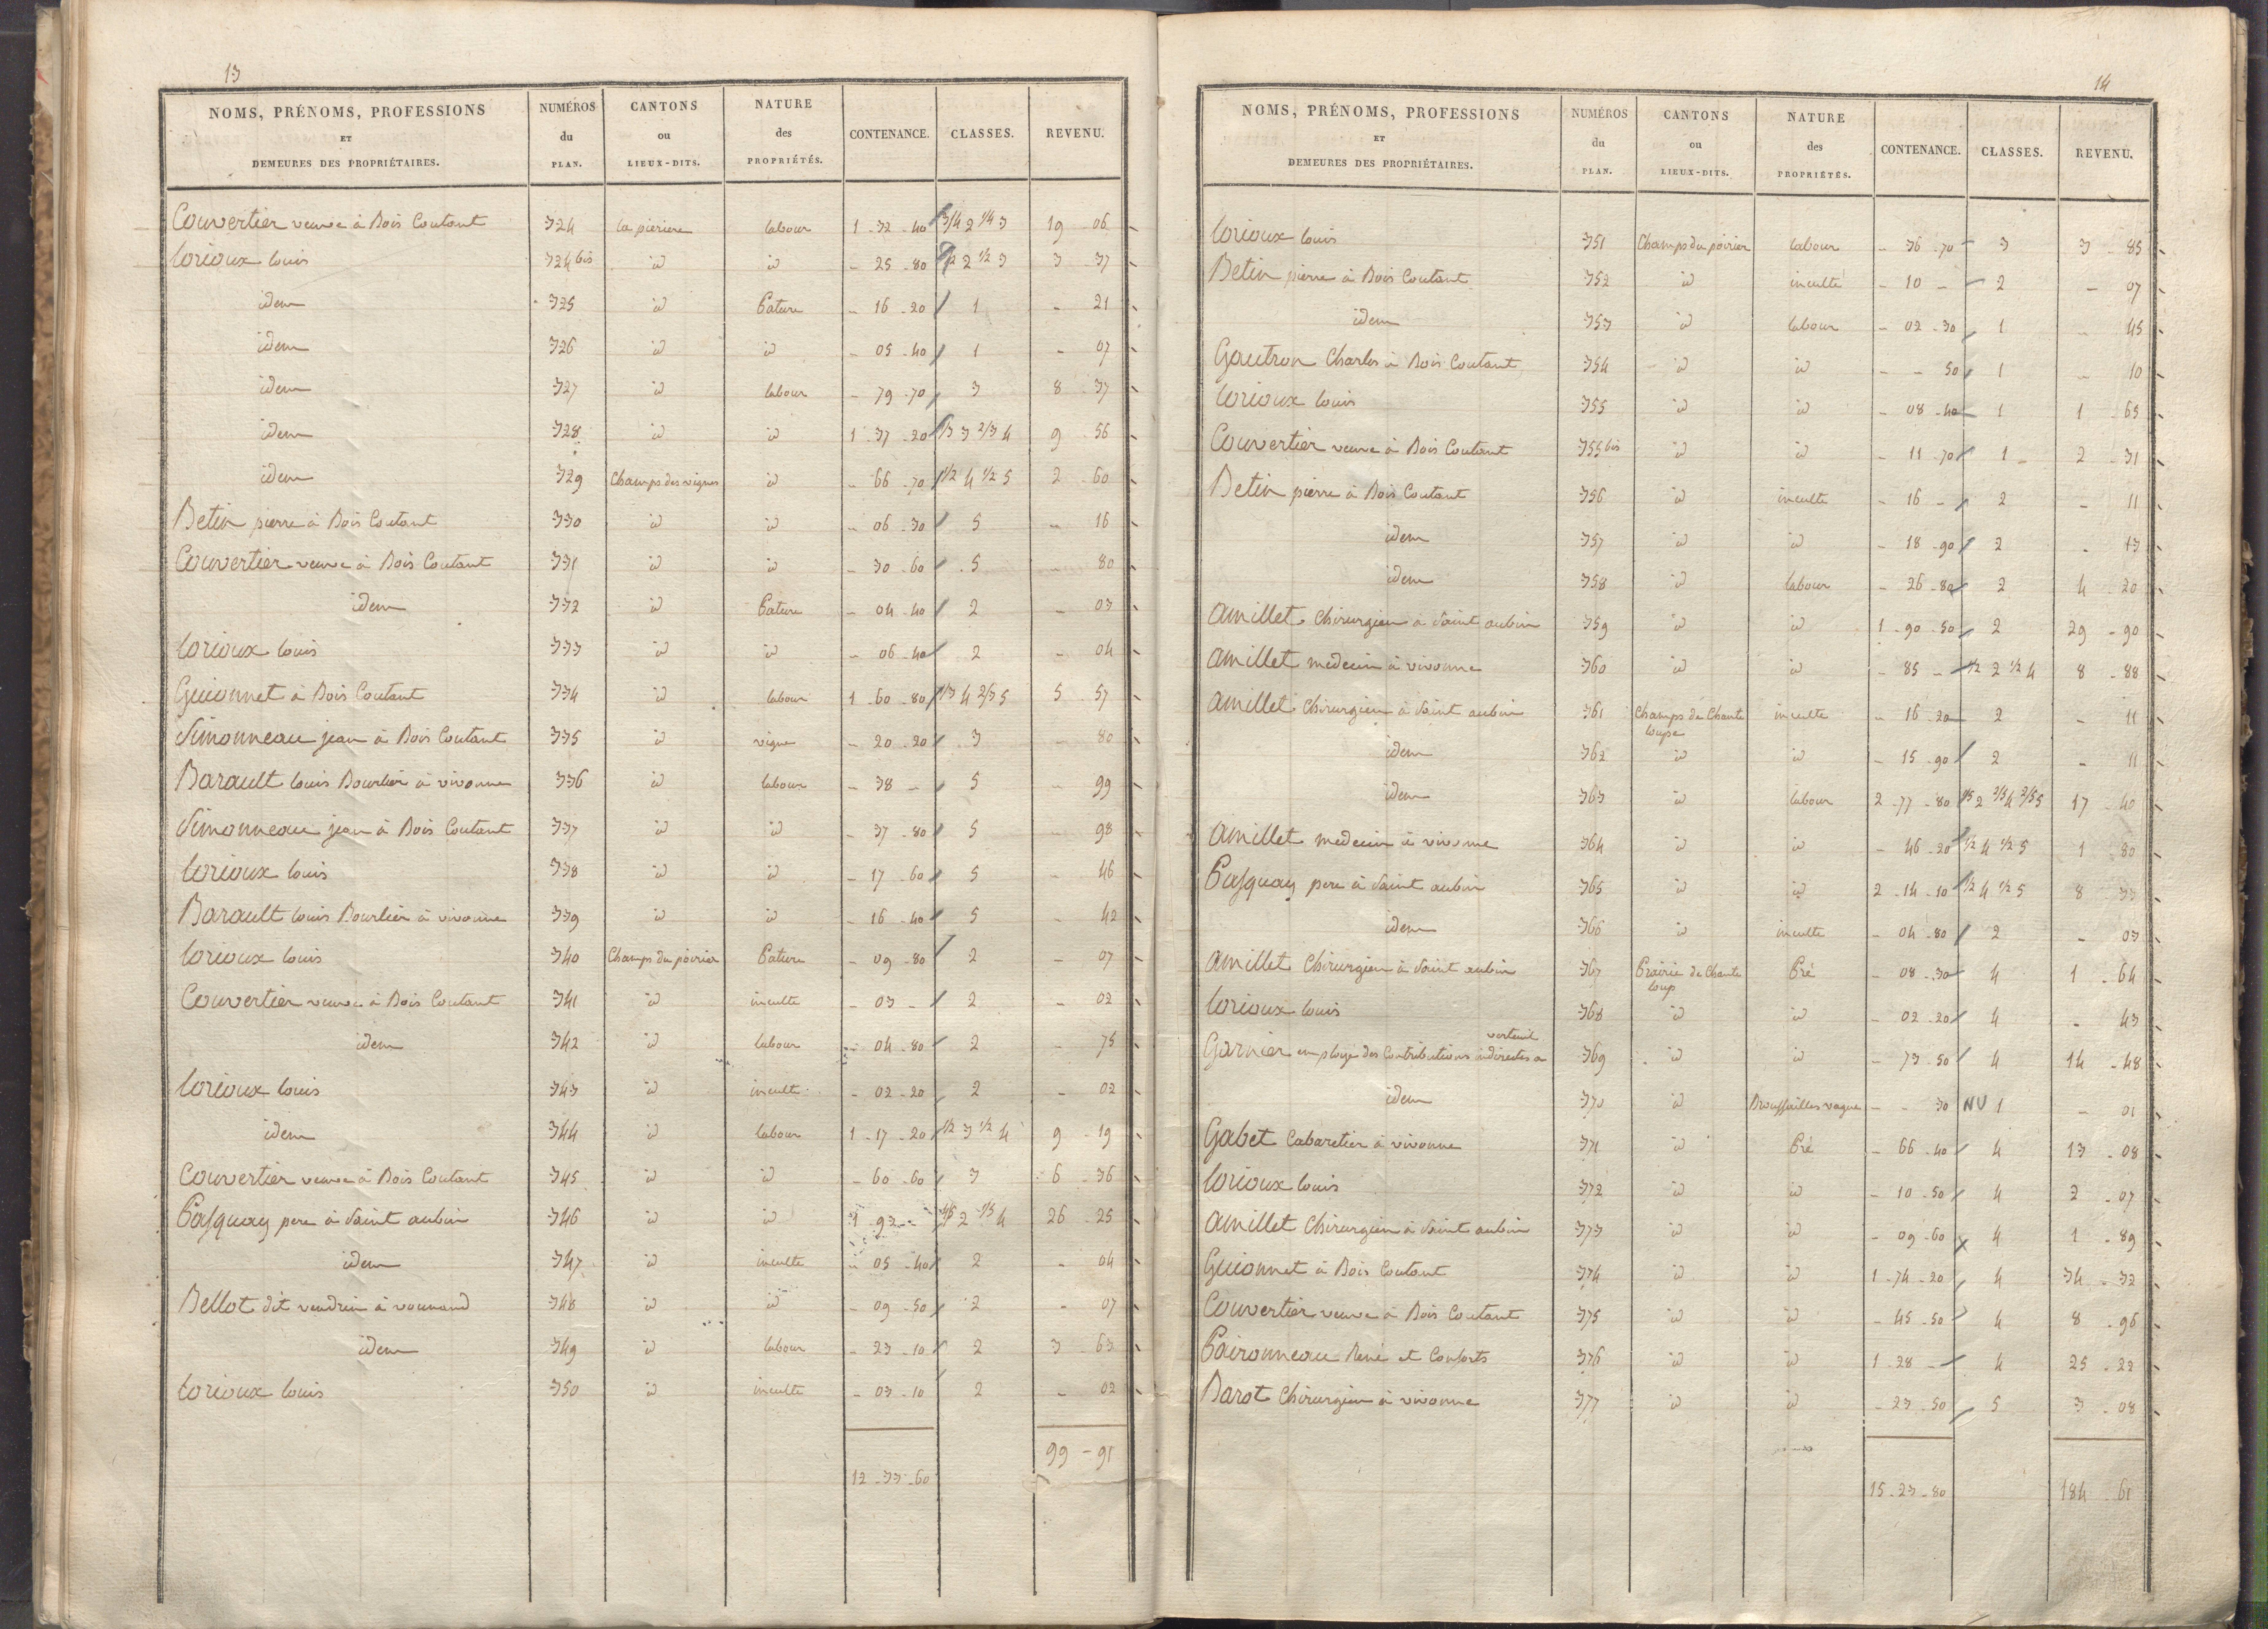 13
NOMS, PRÉNOMS, PROFESSIONS ET DEMEURES DES PROPRIÉTAIRES. NUMÉROS du PLAN. CANTONS ou LIEUX-DITS. NATURE des PROPRIÉTÉS. CONTENANCE. CLASSES. REVENU.
Couvertier veuve à Bois Coutant 324 la pieriere labour 1 - 32 - 40 3/4 2 1/4 3 19 - 06
lorioux louis 324 bis id id - 25 - 80 1/2 2 1/2 3 3 - 37
idem 325 id Pature - 16 - 20 1 - 21
idem 326 id id - 05 - 40 1 - 07
idem 327 id labour - 79 - 70 3 8 - 37
idem 328 id id 1 - 37 - 20 1/3 3 2/3 4 9 - 56
idem 329 Champs des vignes id - 66 - 70 1/2 4 1/2 5 2 - 60
Betin pierre à Bois Coutant 330 id id - 06 - 30 5 - 16
Couvertier veuve à Bois Coutant 331 id id - 30 - 60 5 - 80
idem 332 id Pature - 04 - 40 2 - 03
lorioux louis 333 id id - 06 - 40 2 - 04
Guionnet à Bois Coutant 334 id labour 1 - 60 - 80 1/3 4 2/3 5 5 - 57
Simonneau jean à Bois Coutant 335 id vigne - 20 - 20 3 - 80
Barault louis Bourlier à vivonne 336 id labour - 38 - 5 - 99
Simonneau jean à Bois Coutant 337 id id - 37 - 80 5 - 98
lorioux louis 338 id id - 17 - 60 5 - 46
Barault louis Bourlier à vivonne 339 id id - 16 - 40 5 - 42
lorioux louis 340 Champs du poirier Pature - 09 - 80 2 - 07
Couvertier veuve à Bois Coutant 341 id inculte - 03 - 2 - 02
idem 342 id labour - 04 - 80 2 - 75
lorioux louis 343 id inculte - 02 - 20 2 - 02
idem 344 id labour 1 - 17 - 20 1/2 3 1/2 4 9 - 19
Couvertier veuve à Bois Coutant 345 id id - 60 - 60 3 6 - 36
Pasquay pere à Saint aubin 346 id id 1 - 92 - 4/5 2 1/5 4 26 - 25
idem 347 id inculte - 05 - 40 2 - 04
Bellot dit vendrein à vounand 348 id id - 09 - 50 2 - 07
idem 349 id labour - 23 - 10 2 3 - 63
lorioux louis 350 id inculte - 03 - 10 2 - 02
12 - 33 - 60 99 - 91
14
NOMS, PRÉNOMS, PROFESSIONS ET DEMEURES DES PROPRIÉTAIRES. NUMÉROS du PLAN. CANTONS ou LIEUX-DITS. NATURE des PROPRIÉTÉS. CONTENANCE. CLASSES. REVENU.
lorioux louis 351 Champs du poirier labour - 36 - 70 3 3 - 85
Betin pierre à Bois Coutant 352 id inculte - 10 - 2 - 07
idem 353 id labour - 02 - 30 1 - 45
Gautron Charles à Bois Coutant 354 id id - - 50 1 - 10
lorioux louis 355 id id - 08 - 40 1 1 - 65
Couvertier veuve à Bois Coutant 355 bis id id - 11 - 70 1 2 - 31
Betin pierre à Bois Coutant 356 id inculte - 16 - 2 - 11
idem 357 id id - 18 - 90 2 - 13
idem 358 id labour - 26 - 80 2 4 - 20
amillet Chirurgien à Saint aubin 359 id id 1 - 90 - 50 2 29 - 90
amillet medecin à vivonne 360 id id - 85 - 1/2 2 1/2 4 8 - 88
amillet Chirurgien à Saint aubin 361 Champs de Chante loupe inculte - 16 - 20 2 - 11
idem 362 id id - 15 - 90 2 - 11
idem 363 id labour 2 - 77 - 80 1/5 2 2/5 4 2/5 5 17 - 40
amillet medecin à vivonne 364 id id - 46 - 20 1/2 4 1/2 5 1 - 80
Pasquay pere à Saint aubin 365 id id 2 - 14 - 10 1/2 4 1/2 5 8 - 33
idem 366 id inculte - 04 - 80 2 - 03
amillet Chirurgien à Saint aubin 367 Prairie de Chante loup Pré - 08 - 30 4 1 - 64
lorioux louis 368 id id - 02 - 20 4 - 43
Garnier employe des Contributions indirectes a verteuil 369 id id - 73 - 50 4 14 - 48
idem 370 id Broussailles vague - - 30 NV 1 - 01
Gabet Cabaretier à vivonne 371 id Pré - 66 - 40 4 13 - 08
lorioux louis 372 id id - 10 - 50 4 2 - 07
amillet Chirurgien à Saint aubin 373 id id - 09 - 60 4 1 - 89
Guionnet à Bois Coutant 374 id id 1 - 74 - 20 4 34 - 32
Couvertier veuve à Bois Coutant 375 id id - 45 - 50 4 8 - 96
Paironneau René et Consorts 376 id id 1 - 28 - 4 25 - 22
Barot Chirurgien à vivonne 377 id id - 23 - 50 5 3 - 08
15 - 23 - 80 184 - 61